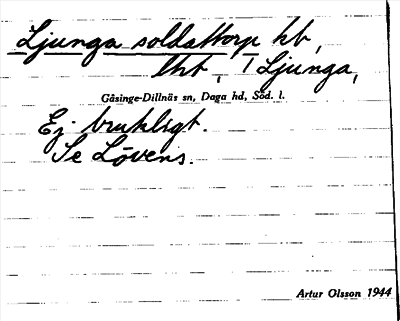 Ljunga soldattorp hb,
lht, 1 Ljunga,
Gåsinge-Dillnäs sn, Daga hd, Söd. l.
Ej brukligt.
Se Lövens.
Artur Olsson 1944